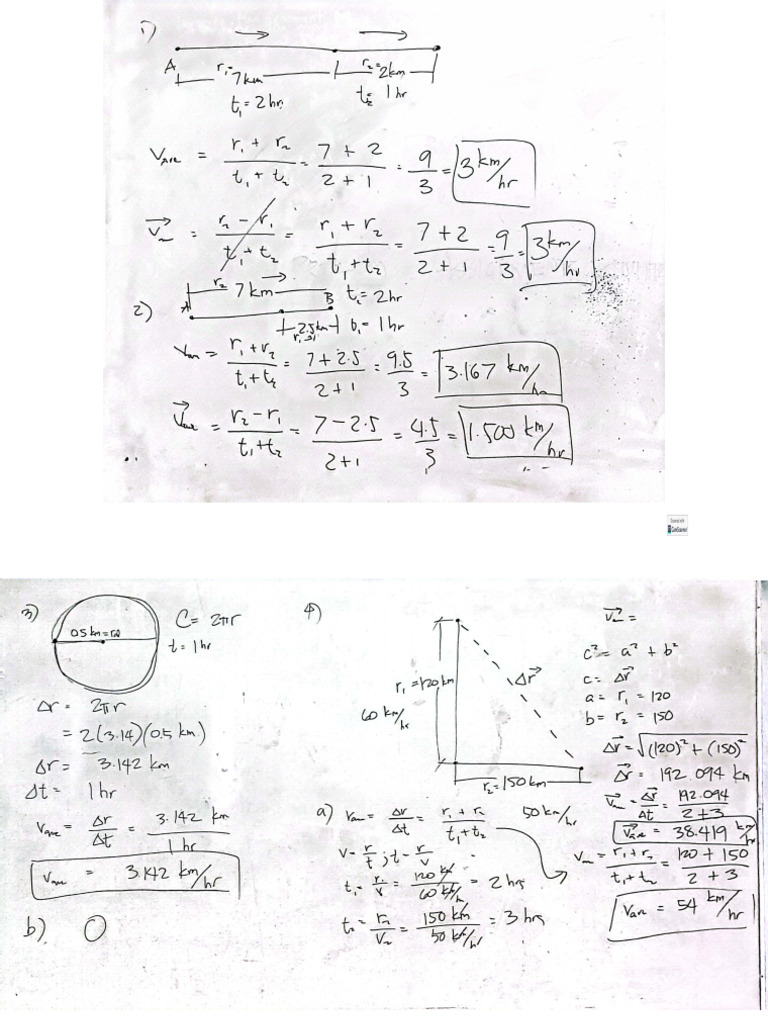 1)
A r₁=7km r₂=2km
t₁=2hr t₂=1hr
V_ave = (r₁+r₂)/(t₁+t₂) = (7+2)/(2+1) = 9/3 = 3 km/hr
V⃗ = (r₂-r₁)/(t₁+t₂) = (r₁+r₂)/(t₁+t₂) = (7+2)/(2+1) = 9/3 = 3 km/hr
2)
r₂ 7km
A B t₂=2hr
2.5km t₁=1hr
r₁
V_ave = (r₁+r₂)/(t₁+t₂) = (7+2.5)/(2+1) = 9.5/3 = 3.167 km/hr
V⃗_ave = (r₂-r₁)/(t₁+t₂) = (7-2.5)/(2+1) = 4.5/3 = 1.500 km/hr
Scanned with
CamScanner
3)
0.5km=r
C=2πr
t=1hr
Δr = 2πr
= 2(3.14)(0.5 km)
Δr = 3.142 km
Δt = 1hr
V_ave = Δr/Δt = 3.142 km/1hr
V_ave = 3.142 km/hr
b) 0
4)
r₁=120km
60 km/hr
Δr⃗
r₂=150km
50 km/hr
a) V_ave = Δr/Δt = (r₁+r₂)/(t₁+t₂)
v=r/t ; t=r/v
t₁=r₁/v=120km/60km/h = 2hrs
t₂=r₂/v₂=150km/50km/hr = 3hrs
V⃗ =
c² = a² + b²
c = Δr⃗
a = r₁ = 120
b = r₂ = 150
Δr⃗ = √((120)²+(150)²)
Δr⃗ = 192.094 km
V⃗ = Δr⃗/Δt = 192.094/(2+3)
V⃗_ave = 38.419 km/hr
V_ave = (r₁+r₂)/(t₁+t₂) = (120+150)/(2+3)
V_ave = 54 km/hr